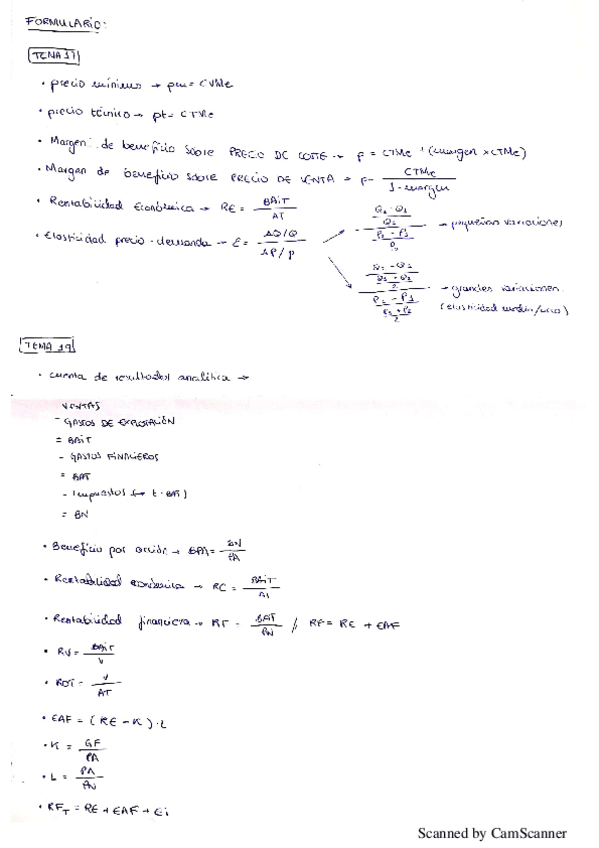 FORMULARIO:
TEMA 17
• precio mínimo → pm = CVMe
• precio técnico → pt = CTMe
• Margen de beneficio sobre PRECIO DE COSTE → P = CTMe + (margen x CTMe)
• Margen de beneficio sobre PRECIO DE VENTA → P = CTMe / 1 - margen
• Rentabilidad Económica → RE = BAiT / AT
• Elasticidad precio-demanda → E = ΔQ/Q / ΔP/P
Q2 - Q1 / Q1 / P2 - P1 / P1 → pequeñas variaciones
Q2 - Q1 / Q2 + Q1 / 2 / P2 - P1 / P1 + P2 / 2 → grandes variaciones
(elasticidad medio/arco)
TEMA 19
• cuenta de resultados analítica →
VENTAS
- GASTOS DE EXPLOTACIÓN
= BAiT
- GASTOS FINANCIEROS
= BAT
- Impuestos (→ t · BAT)
= BN
• Beneficio por acción → BPA = BN / PA
• Rentabilidad económica → RE = BAiT / AT
• Rentabilidad financiera → RF = BAT / PN / RF = RE + EAF
• RV = BAiT / V
• ROT = V / AT
• EAF = (RE - K) · L
• K = GF / PA
• L = PA / PN
• RFT = RE + EAF + Ei
Scanned by CamScanner